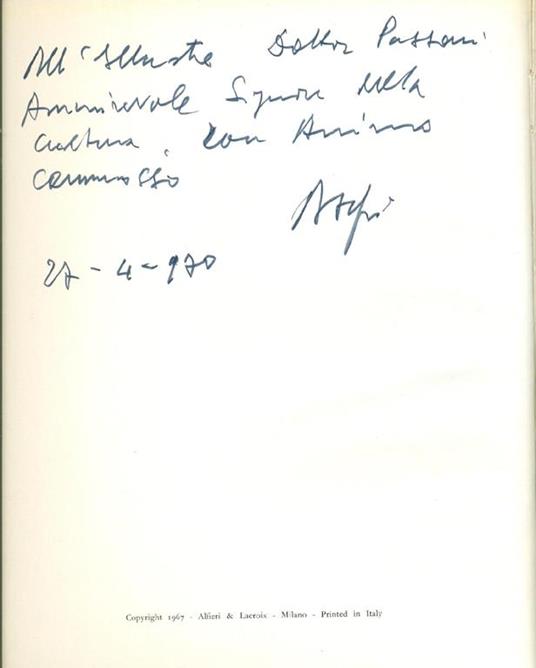 All'Illustre Dottor Passani
Ammirevole Signore della
Cultura, con Animo
Commosso
27-4-970
Copyright 1967 - Alfieri & Lacroix - Milano - Printed in Italy